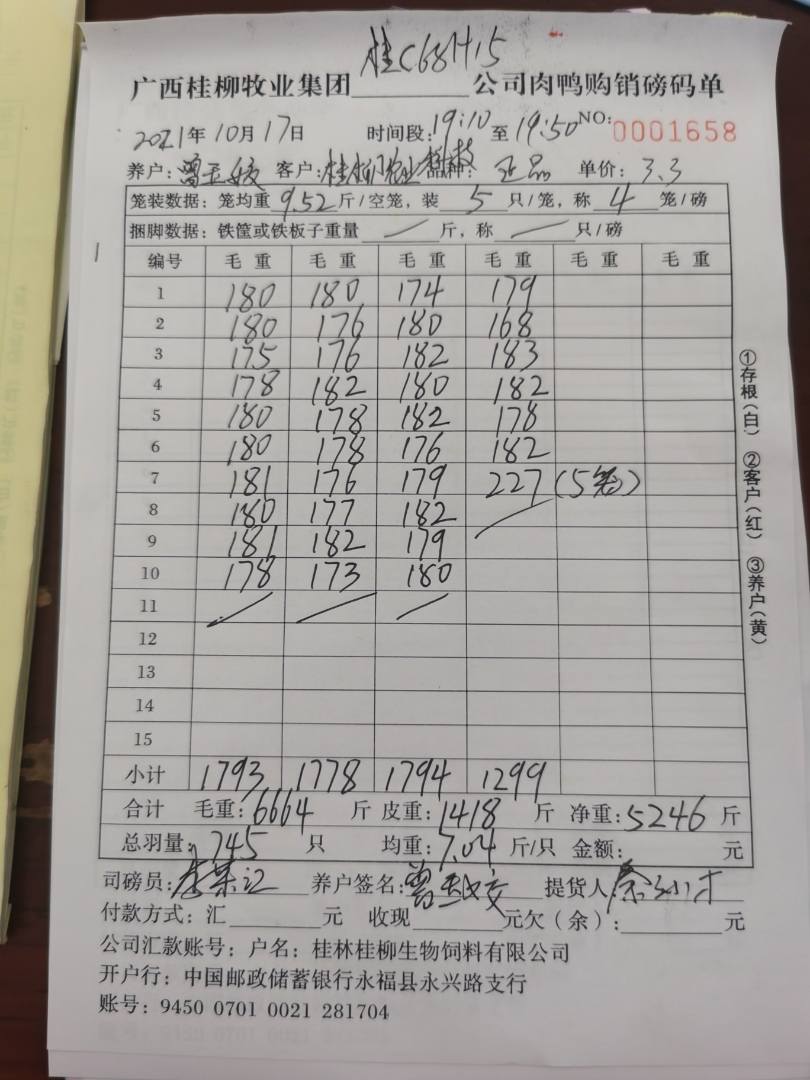 桂C68H15
广西桂柳牧业集团 公司肉鸭购销磅码单
2021年10月17日 时间段:19:10至19:50 NO:0001658
养户: 客户:桂柳 品种: 正品 单价:3.3
笼装数据:笼均重9.52斤/空笼,装5只/笼,称4笼/磅
捆脚数据:铁筐或铁板子重量/斤,称/只/磅
编号 毛重 毛重 毛重 毛重 毛重 毛重
1 180 180 174 179
2 180 176 180 168
3 175 176 182 183
4 178 182 180 182
5 180 178 182 178
6 180 178 176 182
7 181 176 179 227(5笼)
8 180 177 182
9 181 182 179
10 178 173 180
11
12
13
14
15
小计 1793 1778 1794 1299
合计 毛重:6664斤 皮重:1418斤 净重:5246斤
总羽量:745只 均重:7.04斤/只 金额: 元
司磅员: 养户签名: 提货人:
付款方式:汇 元 收现 元欠(余): 元
公司汇款账号:户名:桂林桂柳生物饲料有限公司
开户行:中国邮政储蓄银行永福县永兴路支行
账号:9450 0701 0021 281704
①存根(白) ②客户(红) ③养户(黄)